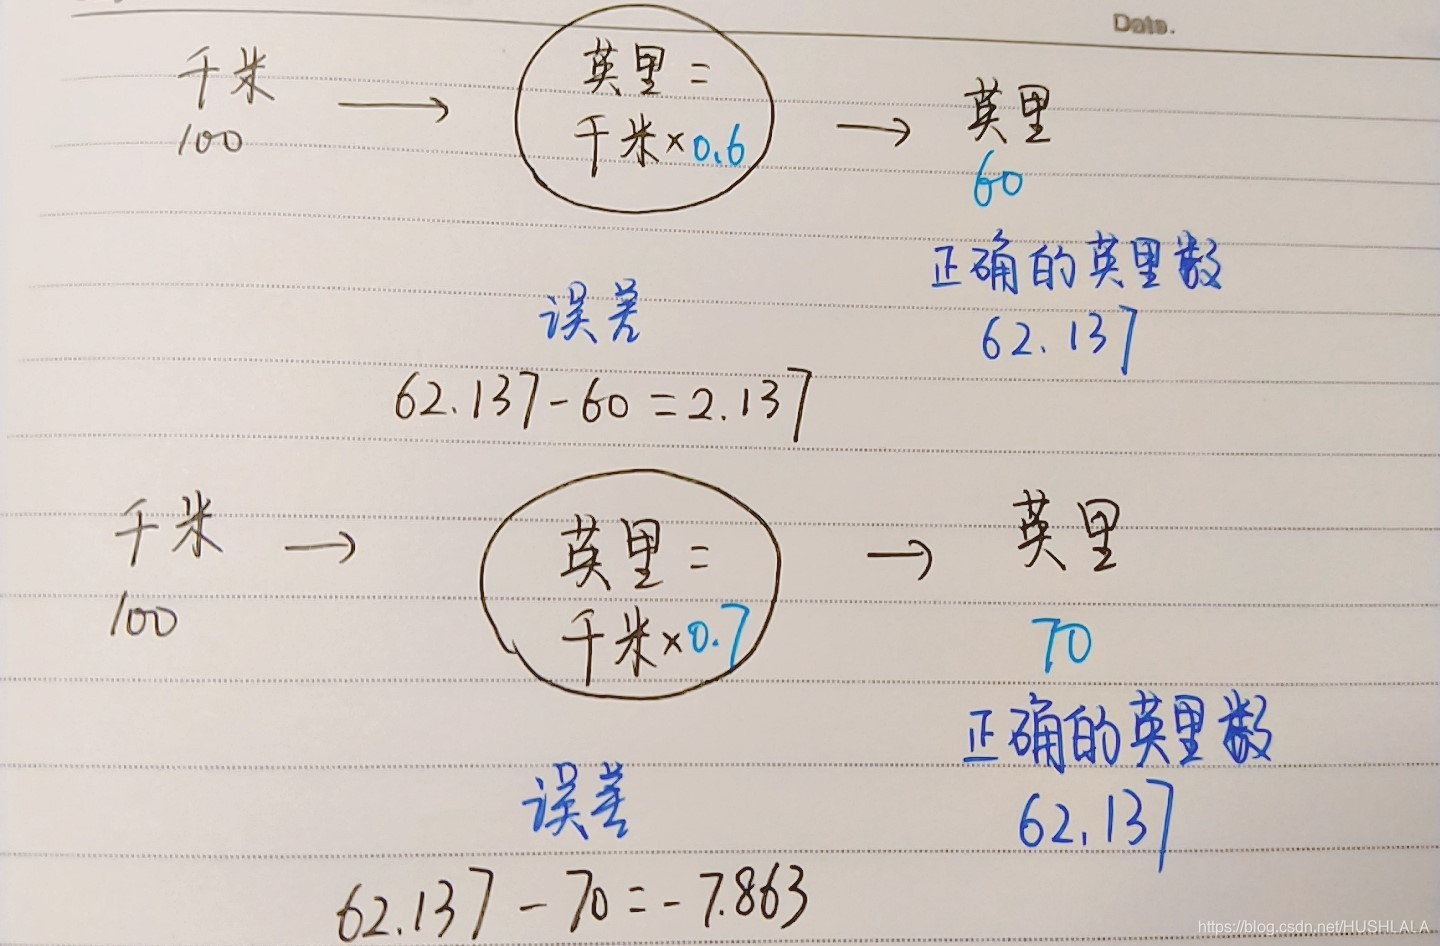 Date.
千米 → 英里 = → 英里
100 千米×0.6 60
正确的英里数
误差 62.137
62.137-60=2.137
千米 → 英里 = → 英里
100 千米×0.7 70
正确的英里数
误差 62.137
62.137-70=-7.863
https://blog.csdn.net/HUSHLALA